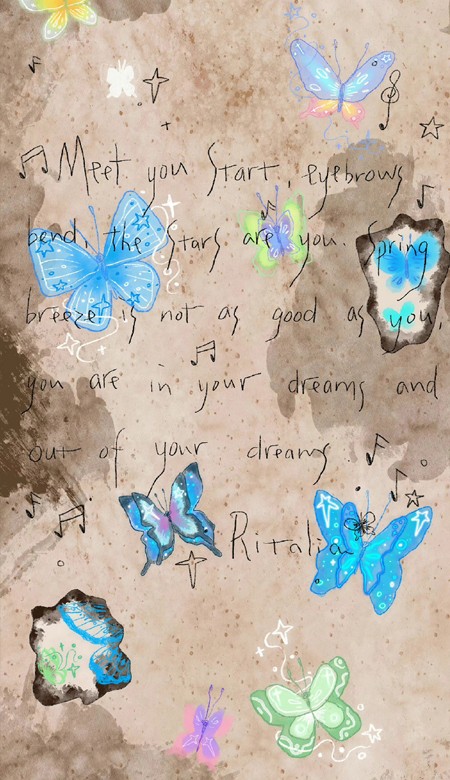 Meet you start, eyebrows
bend, the stars are you. Spring
breeze is not as good as you,
you are in your dreams and
out of your dreams
Ritalia